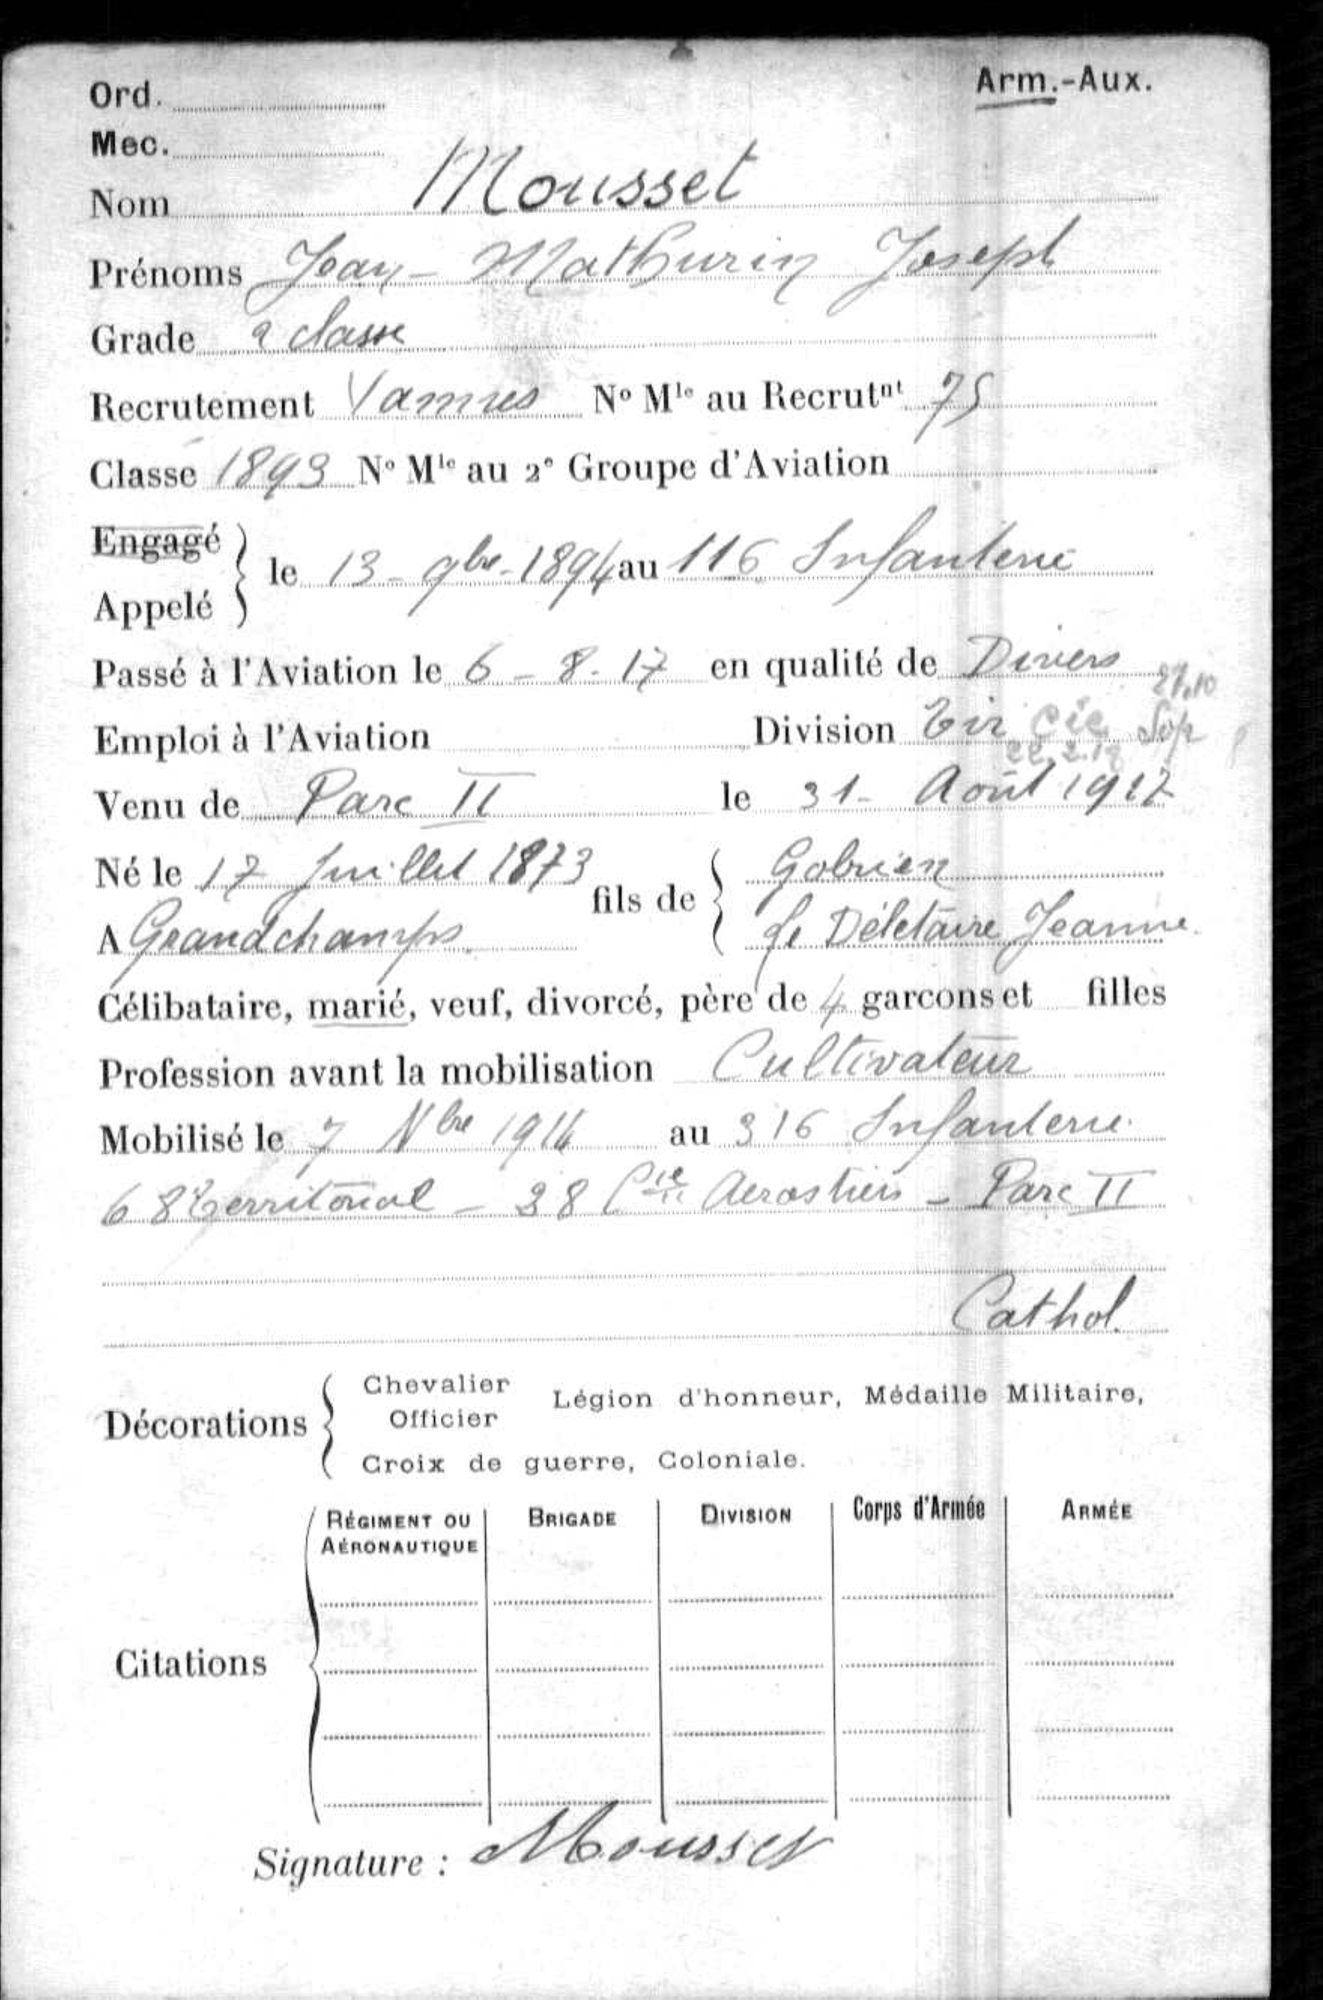 Ord.
Arm.-Aux.
Mec.
Nom Mousset
Prénoms Jean-Mathurin Joseph
Grade 2 classe
Recrutement Vannes Nº Mle au Recrutnt 75
Classe 1893 Nº Mle au 2e Groupe d'Aviation
Engagé
Appelé
le 13-9bre-1894 au 116 Infanterie
Passé à l'Aviation le 6-8-17 en qualité de Divers
27.10
Emploi à l'Aviation Division Tir Cie
22.2.18
Venu de Parc II le 31- Août 1917
Né le 17 Juillet 1873 fils de Gobrien
A Grandchamps. Le Déletaire Jeanne.
Célibataire, marié, veuf, divorcé, père de 4 garcons et filles
Profession avant la mobilisation Cultivateur
Mobilisé le 7 Nbre 1914 au 316 Infanterie.
68 territorial - 38 Cie Aerostiers - Parc II
Cathol.
Décorations
Chevalier
Officier
Légion d'honneur, Médaille Militaire,
Croix de guerre, Coloniale.
Citations
RÉGIMENT OU AÉRONAUTIQUE BRIGADE DIVISION Corps d'Armée ARMÉE
Signature : Mousset